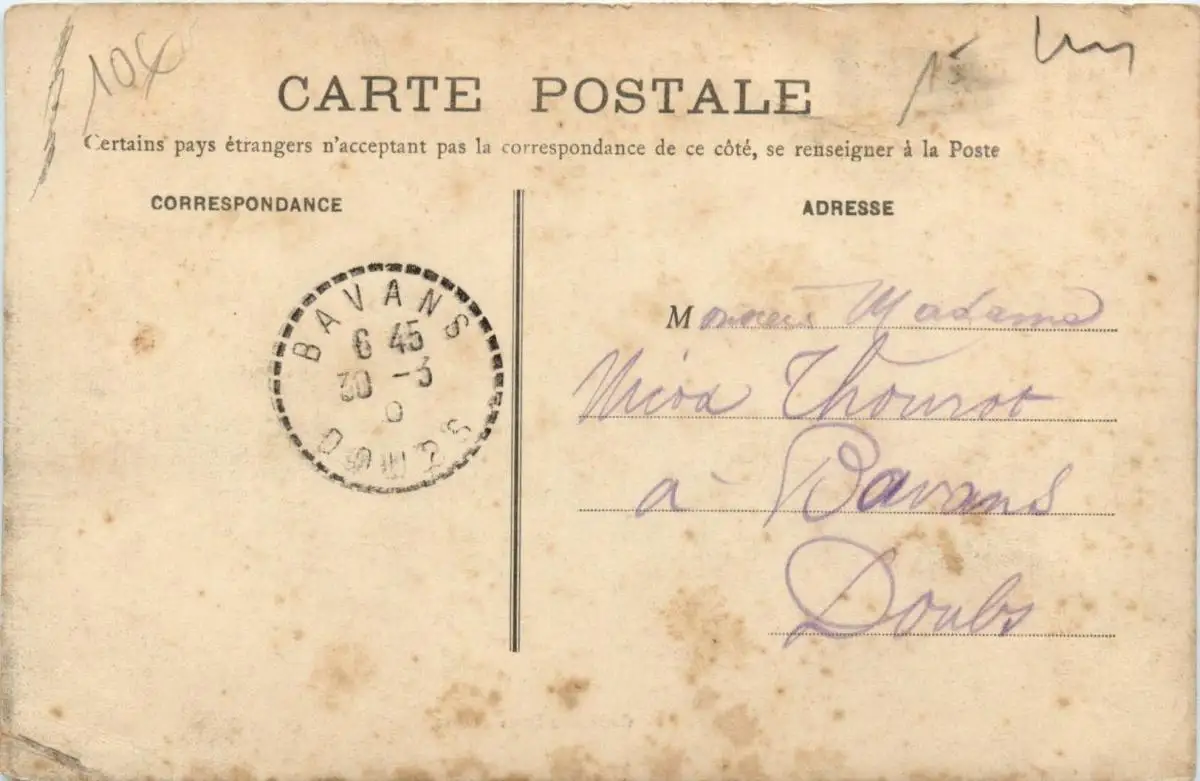 10€
15
CARTE POSTALE
Certains pays étrangers n'acceptant pas la correspondance de ce côté, se renseigner à la Poste
CORRESPONDANCE
ADRESSE
BAVANS
6 45
30 -3
0
DOUBS
Monsieur Madame
Thourot
à Bavans
Doubs